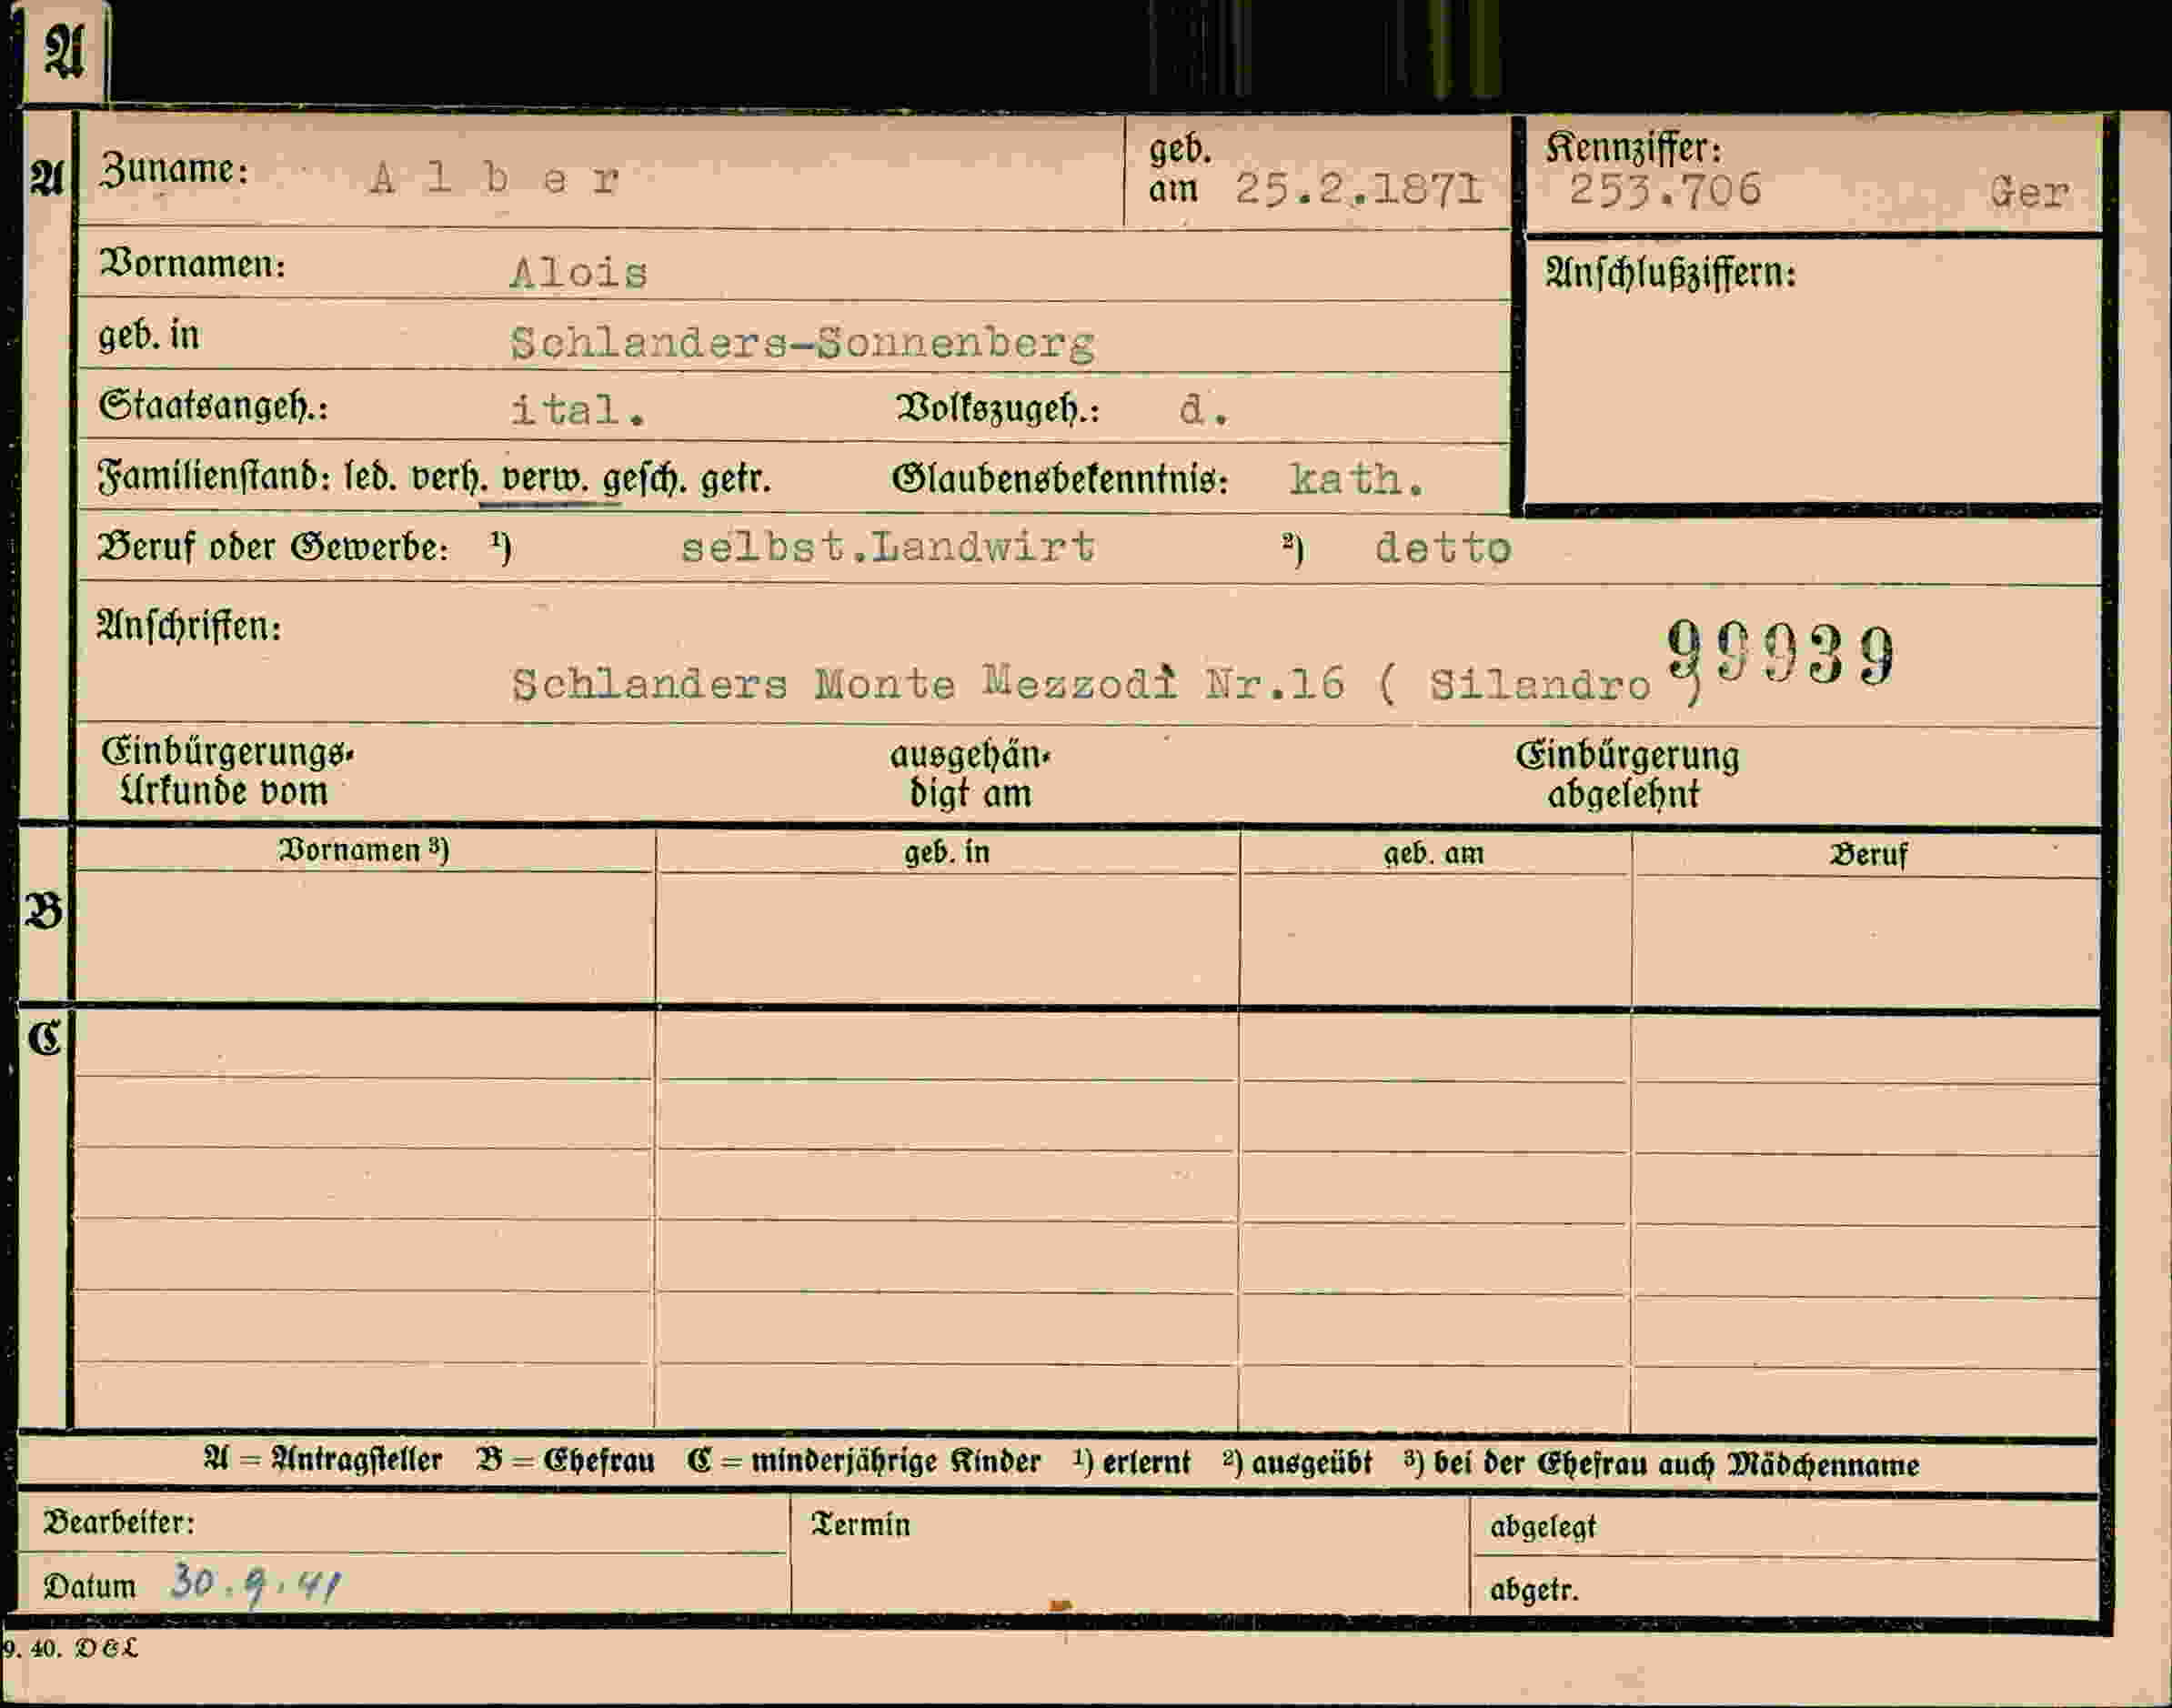 A
A
Zuname: A l b e r
geb.
am 25.2.1871
Kennziffer:
253.706 Ger
Vornamen: Alois
Anschlußziffern:
geb. in Schlanders-Sonnenberg
Staatsangeh.: ital. Volkszugeh.: d.
Familienstand: led. verh. verw. gesch. getr. Glaubensbekenntnis: kath.
Beruf oder Gewerbe: ¹) selbst.Landwirt ²) detto
Anschriften:
99939
Schlanders Monte Mezzodì Nr.16 ( Silandro )
Einbürgerungs-
Urkunde vom
ausgehän-
digt am
Einbürgerung
abgelehnt
B
Vornamen ³) geb. in geb. am Beruf
C
A = Antragsteller B = Ehefrau C = minderjährige Kinder ¹) erlernt ²) ausgeübt ³) bei der Ehefrau auch Mädchenname
Bearbeiter: Termin abgelegt
Datum 30.9.41 abgetr.
9. 40. D&L